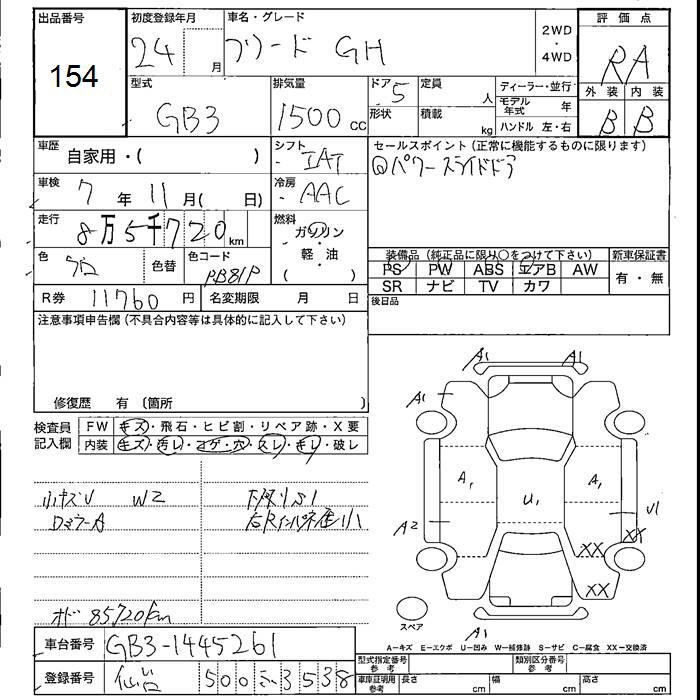 出品番号
154
初度登録年月
24 月
車名・グレード
フリード GH
2WD
・
4WD
評価点
RA
外装 内装
B B
型式
GB3
排気量
1500 cc
ドア 5
形状
定員 人
積載 kg
ディーラー・並行
モデル年式 年
ハンドル 左・右
車歴
自家用・( )
シフト
IAT
車検 7 年 11 月( 日)
冷房
AAC
走行
8万5千720 km
燃料
ガソリン
・
軽・油
( )
色
色替
色コード
PB81P
R券 11760 円
名変期限 月 日
セールスポイント(正常に機能するものに限ります)
パワースライドドア
装備品(純正品に限り○をつけて下さい)
新車保証書
PS PW ABS エアB AW
SR ナビ TV カワ
有・無
後日品
注意事項申告欄(不具合内容等は具体的に記入して下さい)
修復歴 有(箇所
検査員
記入欄
FW キズ・飛石・ヒビ割・リペア跡・X要
内装 キズ・汚レ・コゲ・穴・スレ・キレ・破レ
小キズU W2
ロミラーA
下廻りS1
オド 85720km
A1 A1
A1
A1 A1
U1
A2
U1
XX XX
XX
A1
スペア
A−キズ E−エクボ U−凹み W−補修跡 S−サビ C−腐食 XX−交換済
車台番号 GB3-1445261
登録番号 仙台 500 み 3538
型式指定番号
参考
類別区分番号
参考
車庫証明用
参考
長さ cm 幅 cm 高さ cm